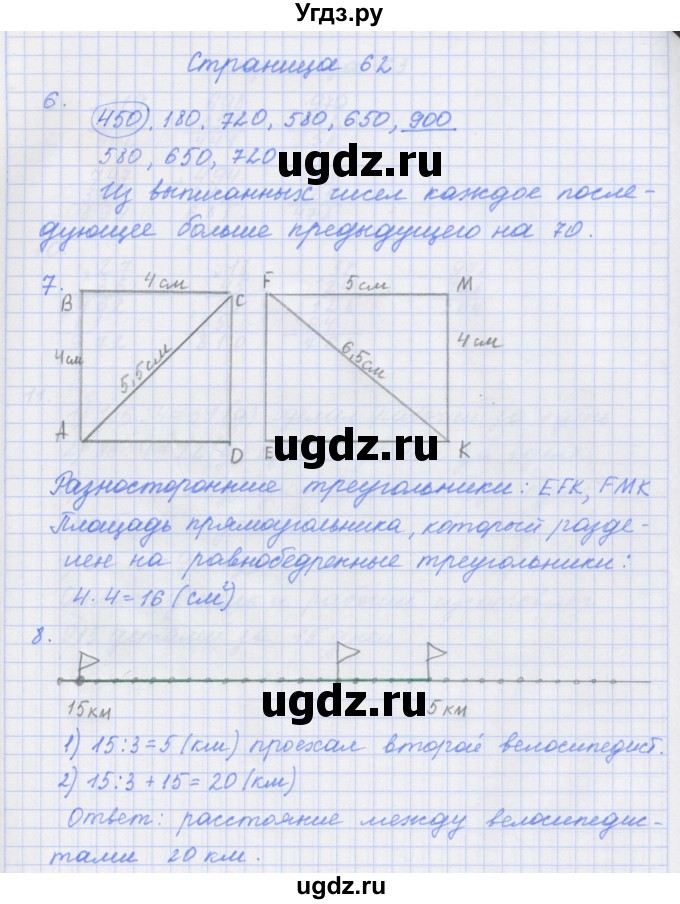 Угдз.ру
Страница 62
6.
450, 180, 720, 580, 650, 900
580, 650, 720
ugdz.ru
Из выписанных чисел каждое после-
дующее больше предыдущего на 70.
7.
B 4 см C F 5 см M
4 см 5,5 см 6,5 см 4 см
A D E K
ugdz.ru
Разносторонние треугольники: EFK, FMK
Площадь прямоугольника, который разде-
лен на равнобедренные треугольники:
4·4=16 (см²)
8.
15 км 5 км
ugdz.ru
1) 15:3=5 (км) проехал второй велосипедист.
2) 15:3+15=20 (км)
Ответ: расстояние между велосипедис-
тами 20 км.
ugdz.ru